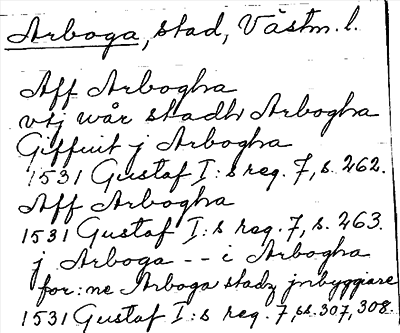 Arboga, stad, Västm. l.
Aff Arbogha
vtj wår stadh Arbogha
Giffuit j Arbogha
1531 Gustaf I:s reg. 7, s. 262.
Aff Arbogha
1531 Gustaf I:s reg. 7, s. 263.
j Arboga -- i Arbogha
for:ne Arboga stadz jnbyggiare
1531 Gustaf I:s reg. 7, ss. 307, 308.